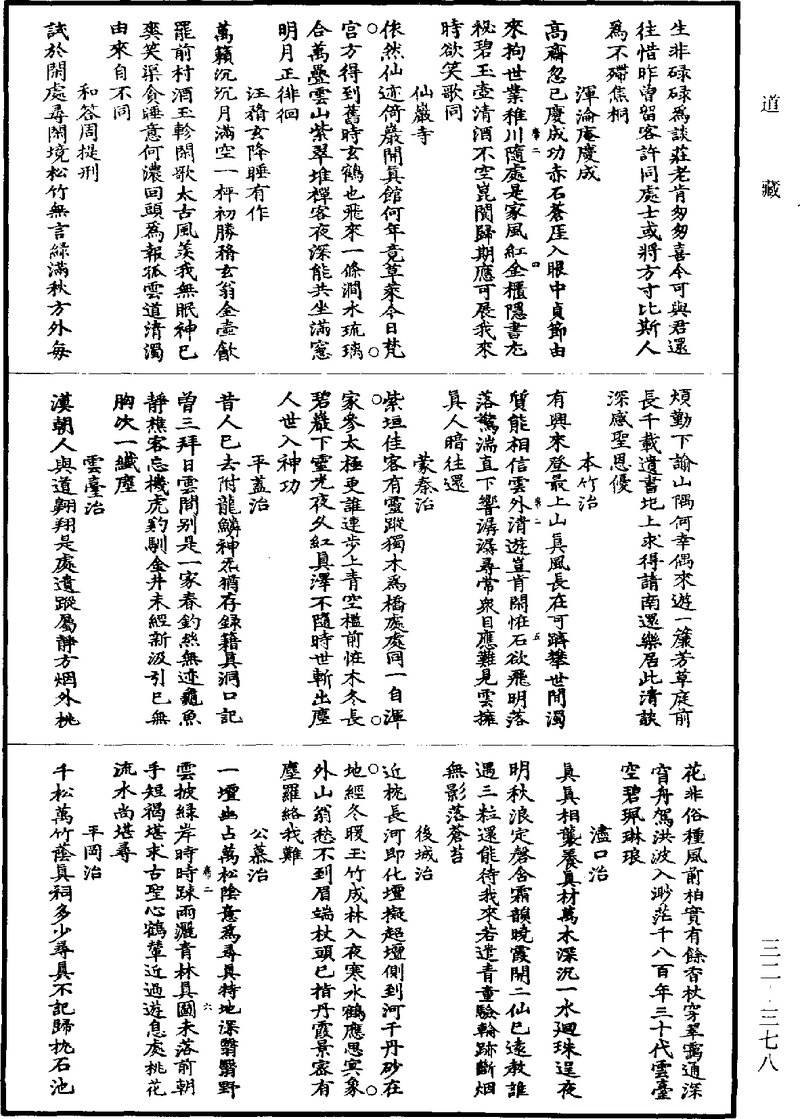 道藏
三二·三七八
生非碌碌為談莊老肯匆匆喜今可與君還
往惜昨曾留客許同處士或將方寸比斯人
為不殢焦桐
渾淪庵慶成
高齋忽已慶成功赤石蒼崖入眼中貞節由
來拘世業稚川隨處是家風紅金櫃隱書尨
秘碧玉壺清酒不空崑閬歸期應可展我來
時欲笑歌同
仙巖寺
依然仙迹倚巖開真館何年竟草萊今日梵
宮方得到舊時玄鶴也飛來一條澗水琉璃
合萬疊雲山紫翠堆禪客夜深能共坐滿窻
明月正徘徊
汪稽玄降睡有作
萬籟沉沉月滿空一枰初勝稽玄翁金壺飲
罷前村酒玉軫閑歌太古風羨我無眠神已
爽笑渠貪睡意何濃回頭為報孤雲道清濁
由來自不同
和答周提刑
試於閑處尋閑境松竹無言綠滿秋方外每
煩勤下諭山隅何幸偶來遊一簾芳草庭前
長千載遺書地上求得請南還樂居此清談
深感聖恩優
本竹治
有興來登最上山真風長在可躋攀世間濁
質能相信雲外清遊豈肯閑恠石欲飛明落
落驚湍直下響潺潺尋常衆目應難見雲擁
真人暗往還
蒙秦治
紫垣佳客有靈蹤獨木為橋處處同一自渾
家參太極更誰連步上青空檻前恠木冬長
碧巖下靈光夜久紅真澤不隨時世斬出塵
人世入神功
平蓋治
昔人已去附龍鱗神炁猶存録籍真洞口記
曾三拜日雲間别是一家春釣絲無迹龜魚
靜樵客忘機虎豹馴金井未經新汲引已無
胸次一纖塵
雲臺治
漢朝人與道翺翔是處遺蹤屬靜方烟外桃
花非俗種風前柏實有餘香杖穿翠靄通深
窅舟駕洪波入渺茫千八百年三十代雲臺
空碧珮琳琅
瀘口治
真真相襲養真材萬木深沉一水迴珠逞夜
明秋浪定磬含霜韻曉霞開二仙已遠教誰
遇三粒還能待我來若遣青童驗輪跡斷烟
無影落蒼苔
後城治
近枕長河即化壇擬超壇側到河干丹砂在
地經冬暖玉竹成林入夜寒水鶴應思㝠象
外山翁愁不到眉端杖頭已指丹霞景客有
塵羅絡我難
公慕治
一壇幽占萬松陰意為尋真特地深翳翳野
雲披綠岸時時踈雨灑青林具圖未落前朝
手短褐堪求古聖心鶴輦近過遊息處桃花
流水尚堪尋
平岡治
千松萬竹蔭真祠多少尋真不記歸枕石池
卷二
四
卷二
五
卷二
六